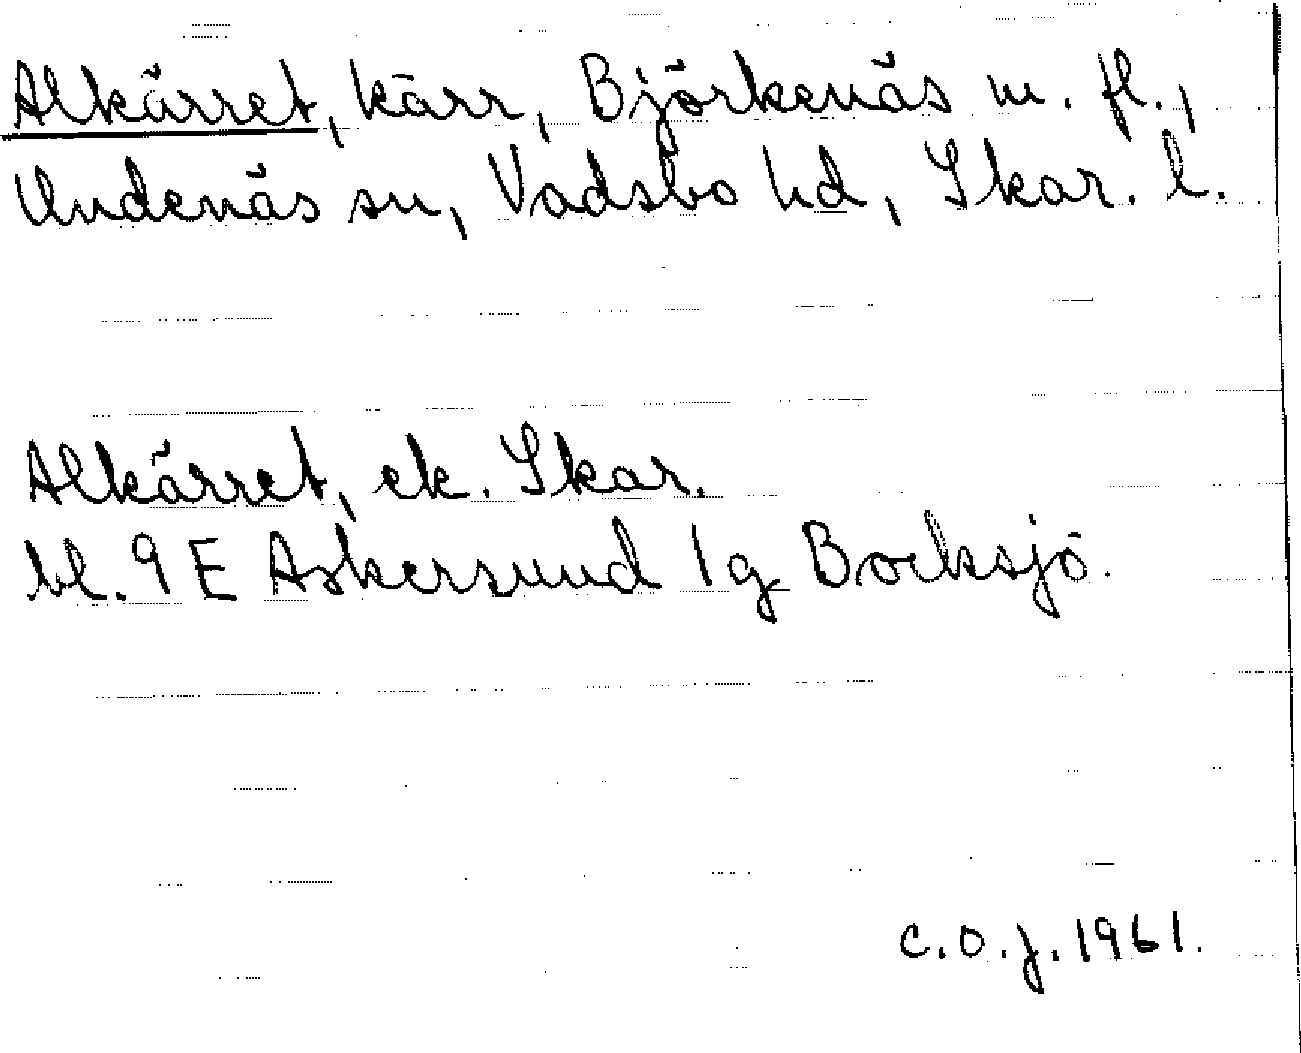 Alkärret, kärr, Björkenäs m. fl.,
Undenäs sn, Vadsbo hd, Skar. l.
Alkärret, ek. Skar.
bl. 9 E Askersund 1 g Bocksjö.
C.O.J. 1961.